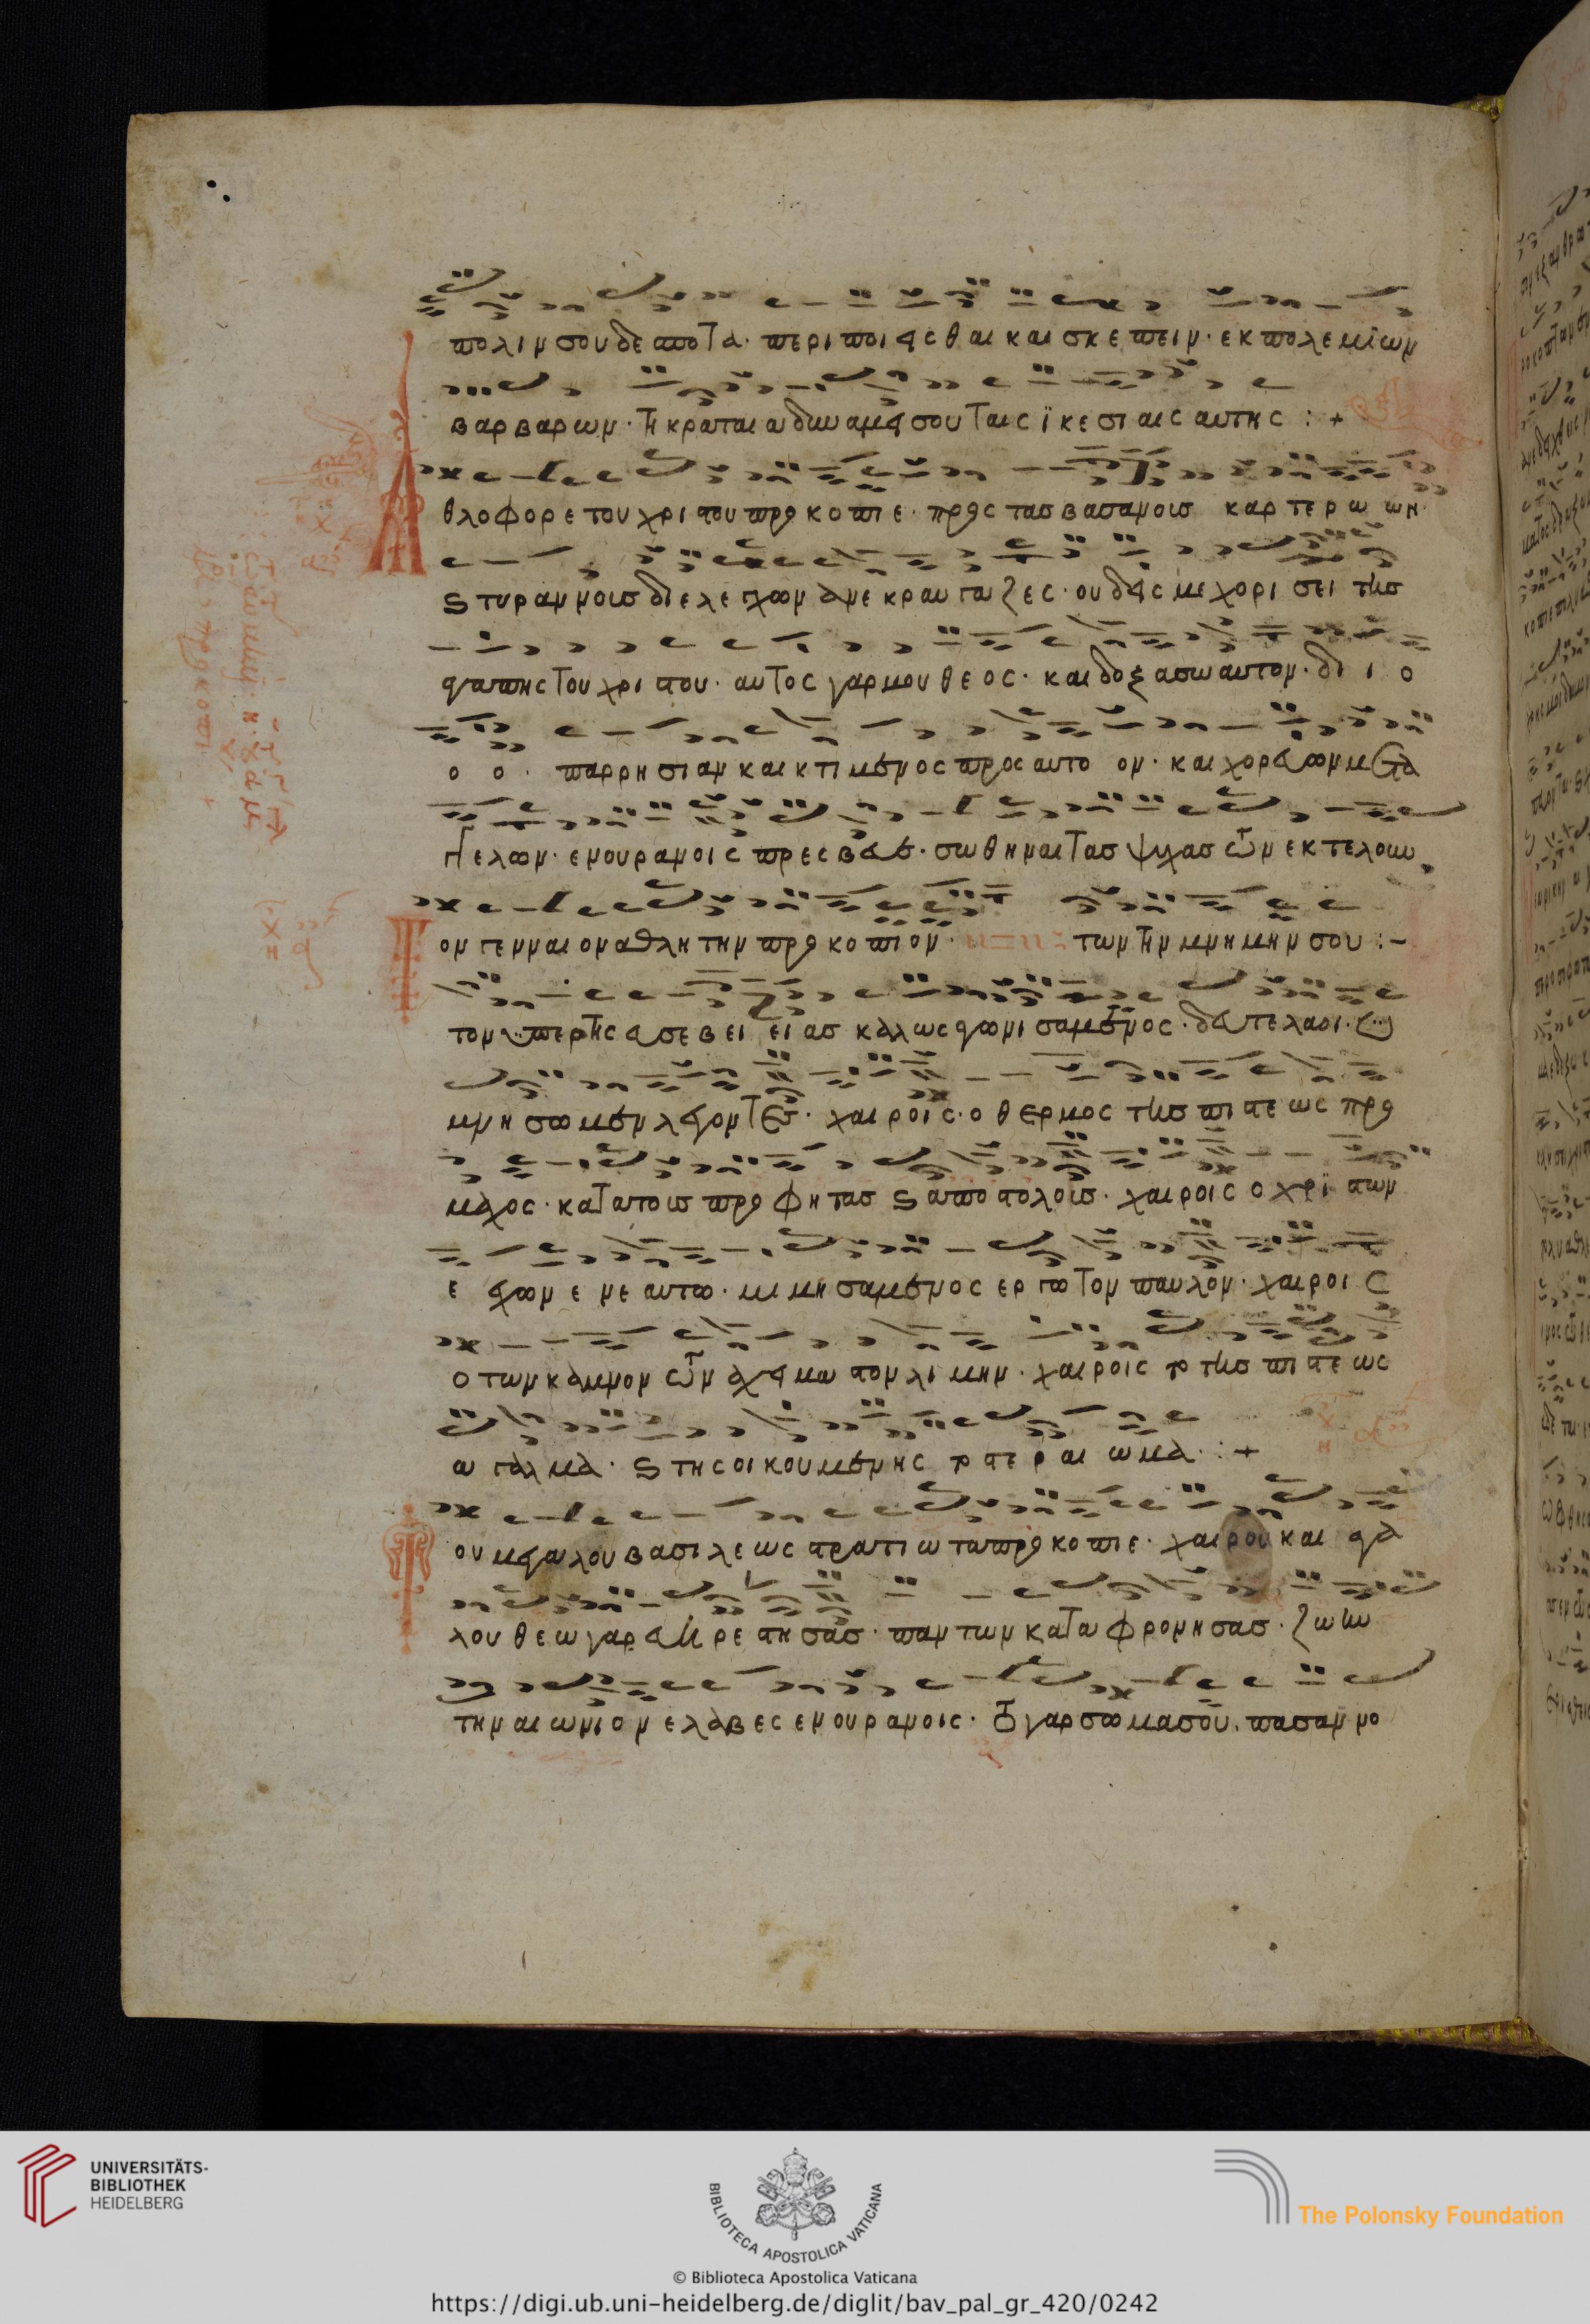 πολιν σου δεσποτα· περιποιεισθαι και σκεπειν· εκ πολεμϊων
βαρβαρων· τη κραταια δυναμει σου ταις ϊκεσιαις αυτης :+
Αθλοφορε του χριστου προκοπιε· προς τας βασανους καρτερω ων
ϛ τυραννους διελεγχων ανεκραυγαζες· ουδεις με χορισει της
αγαπης του χριστου· αυτος γαρ μου θεος· και δοξασω αυτον· δι ι ο
ο ο· παρρησιαν κεκτιμενος προς αυτο ον· και χορευων μετα
αγγελων· εν ουρανοις πρεσβευε· σωθηναι τας ψυχας των εκτελουν
Τον γενναιον αθλητην προκοπιον· των την μνημην σου :-
τον υπερ της ευσεβει ει ας καλως αγωνισαμενος· δευτε λαοι· ευ
μνησωμεν λεγοντες· χαιροις· ο θερμος της πιστεως προ
μαχος· κατα τους προφητας ϛ αποστολους· χαιροις ο χρϊστων
ε αγων ενε αυτω· μιμησαμενος εργω τον παυλον· χαιροι ς
ο των καμνον των αχειμαστον λιμην· χαιροις το της πιστεως
αγαλμα· ϛ της οικουμενης το στεραιωμα :+
Του μεγαλου βασιλεως στρατιωτα προκοπιε· χαιρου και αγα
λου θεω γαρ ευηρεστησας· παντων καταφρονησας· ζωην
την αιωνιον ελαβες εν ουρανοις· το γαρ σωμα σου· πασαν νο
UNIVERSITÄTS-
BIBLIOTHEK
HEIDELBERG
BIBLIOTECA APOSTOLICA VATICANA
The Polonsky Foundation
© Biblioteca Apostolica Vaticana
https://digi.ub.uni-heidelberg.de/diglit/bav_pal_gr_420/0242